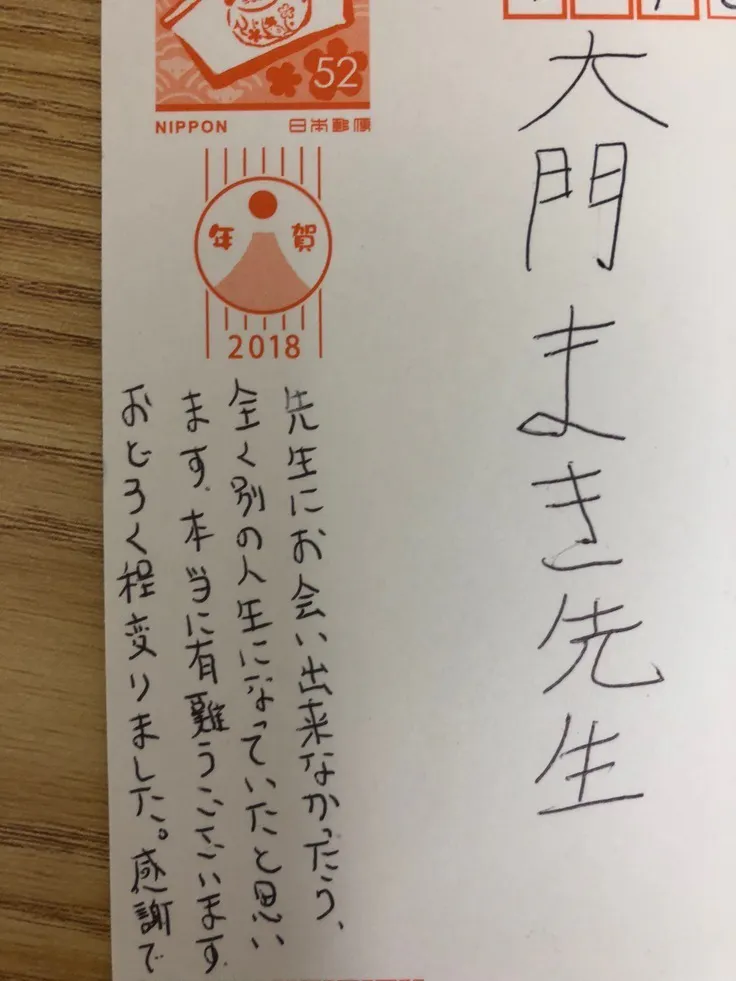 52
NIPPON 日本郵便
年賀
2018
大門まき先生
先生にお会い出来なかったら、
全く別の人生になっていたと思い
ます。本当に有難うございます。
おどろく程変りました。感謝で